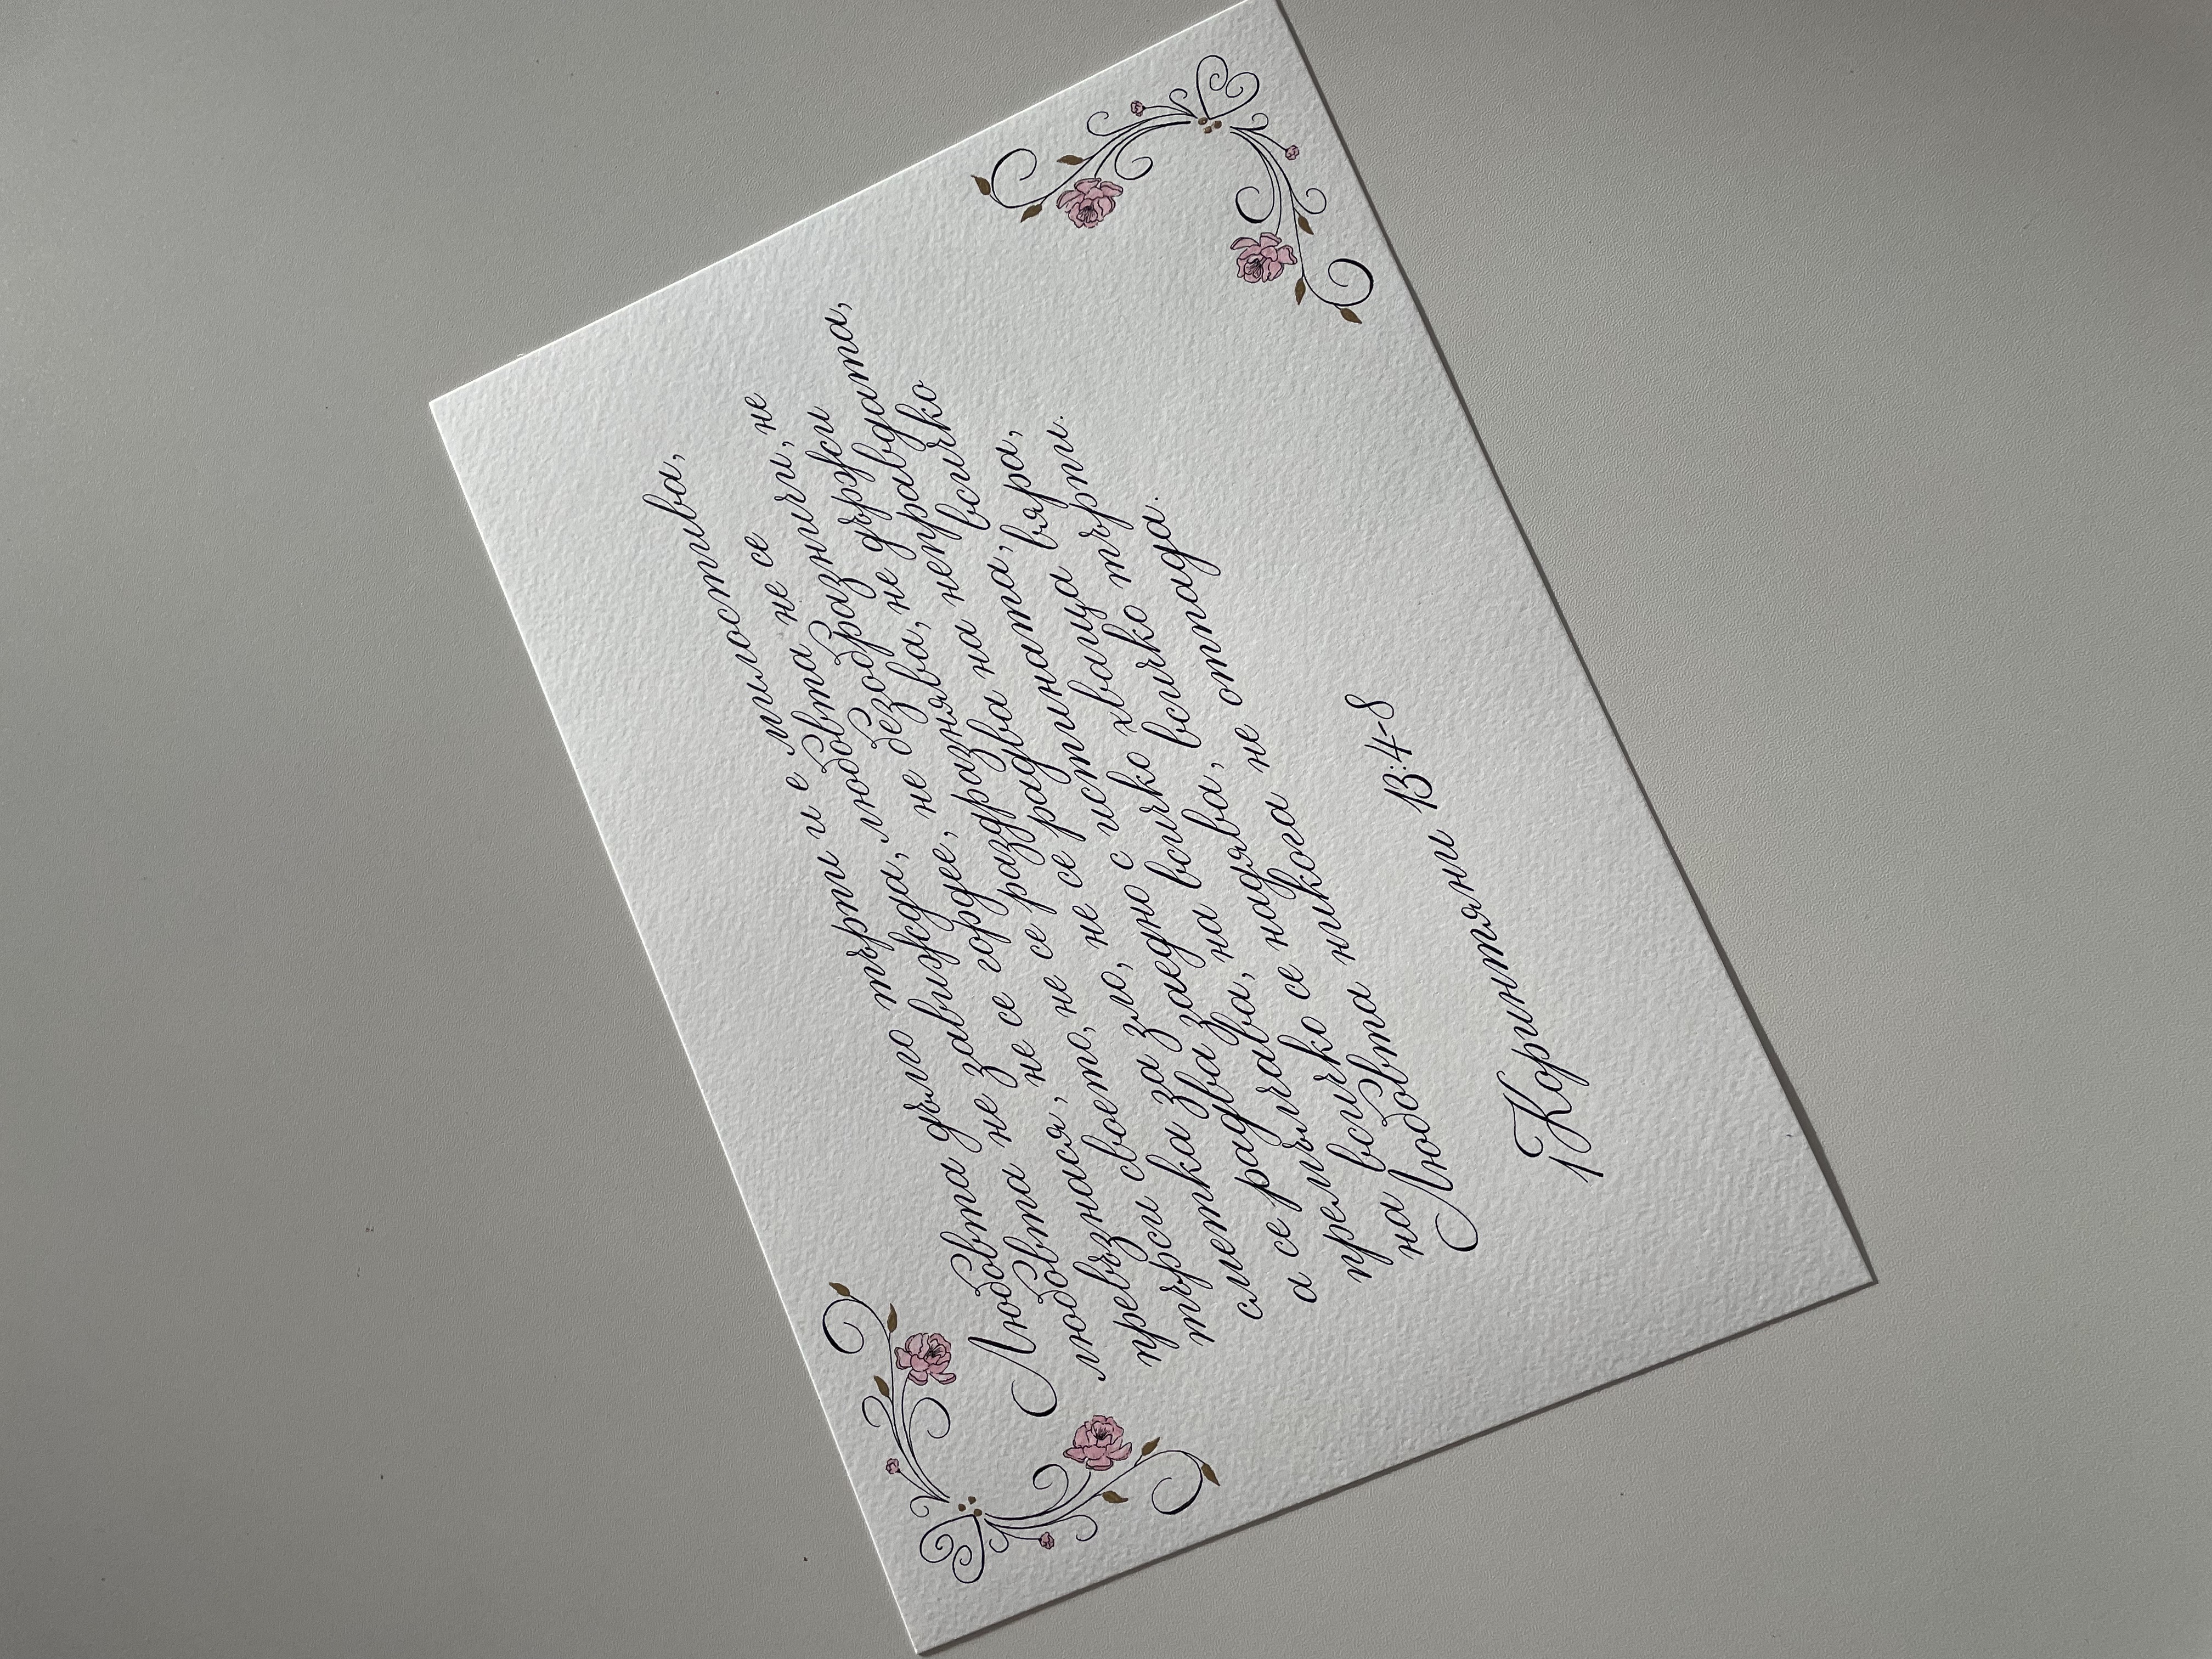 Любовта дълго търпи и е милостива,
любовта не завижда, любовта не се
превъзнася, не се гордее, не безобразничи, не
търси своето, не се раздразнява, не държи
сметка за зло, не се радва на неправдата,
а се радва заедно с истината, всичко
премълчава, на всичко хваща вяра,
на всичко се надява, всичко търпи.
Любовта никога не отпада.
1 Коринтяни 13:4-8